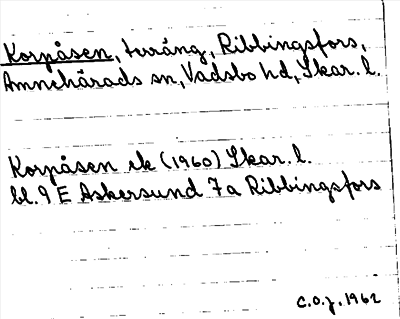 Korpåsen, turäng, Ribbingsfors,
Amnehärads sn, Vadsbo hd, Skar. l.
Korpåsen ek (1960) Skar. l.
bl. 9 E Askersund 7a Ribbingsfors
C.O.J. 1962